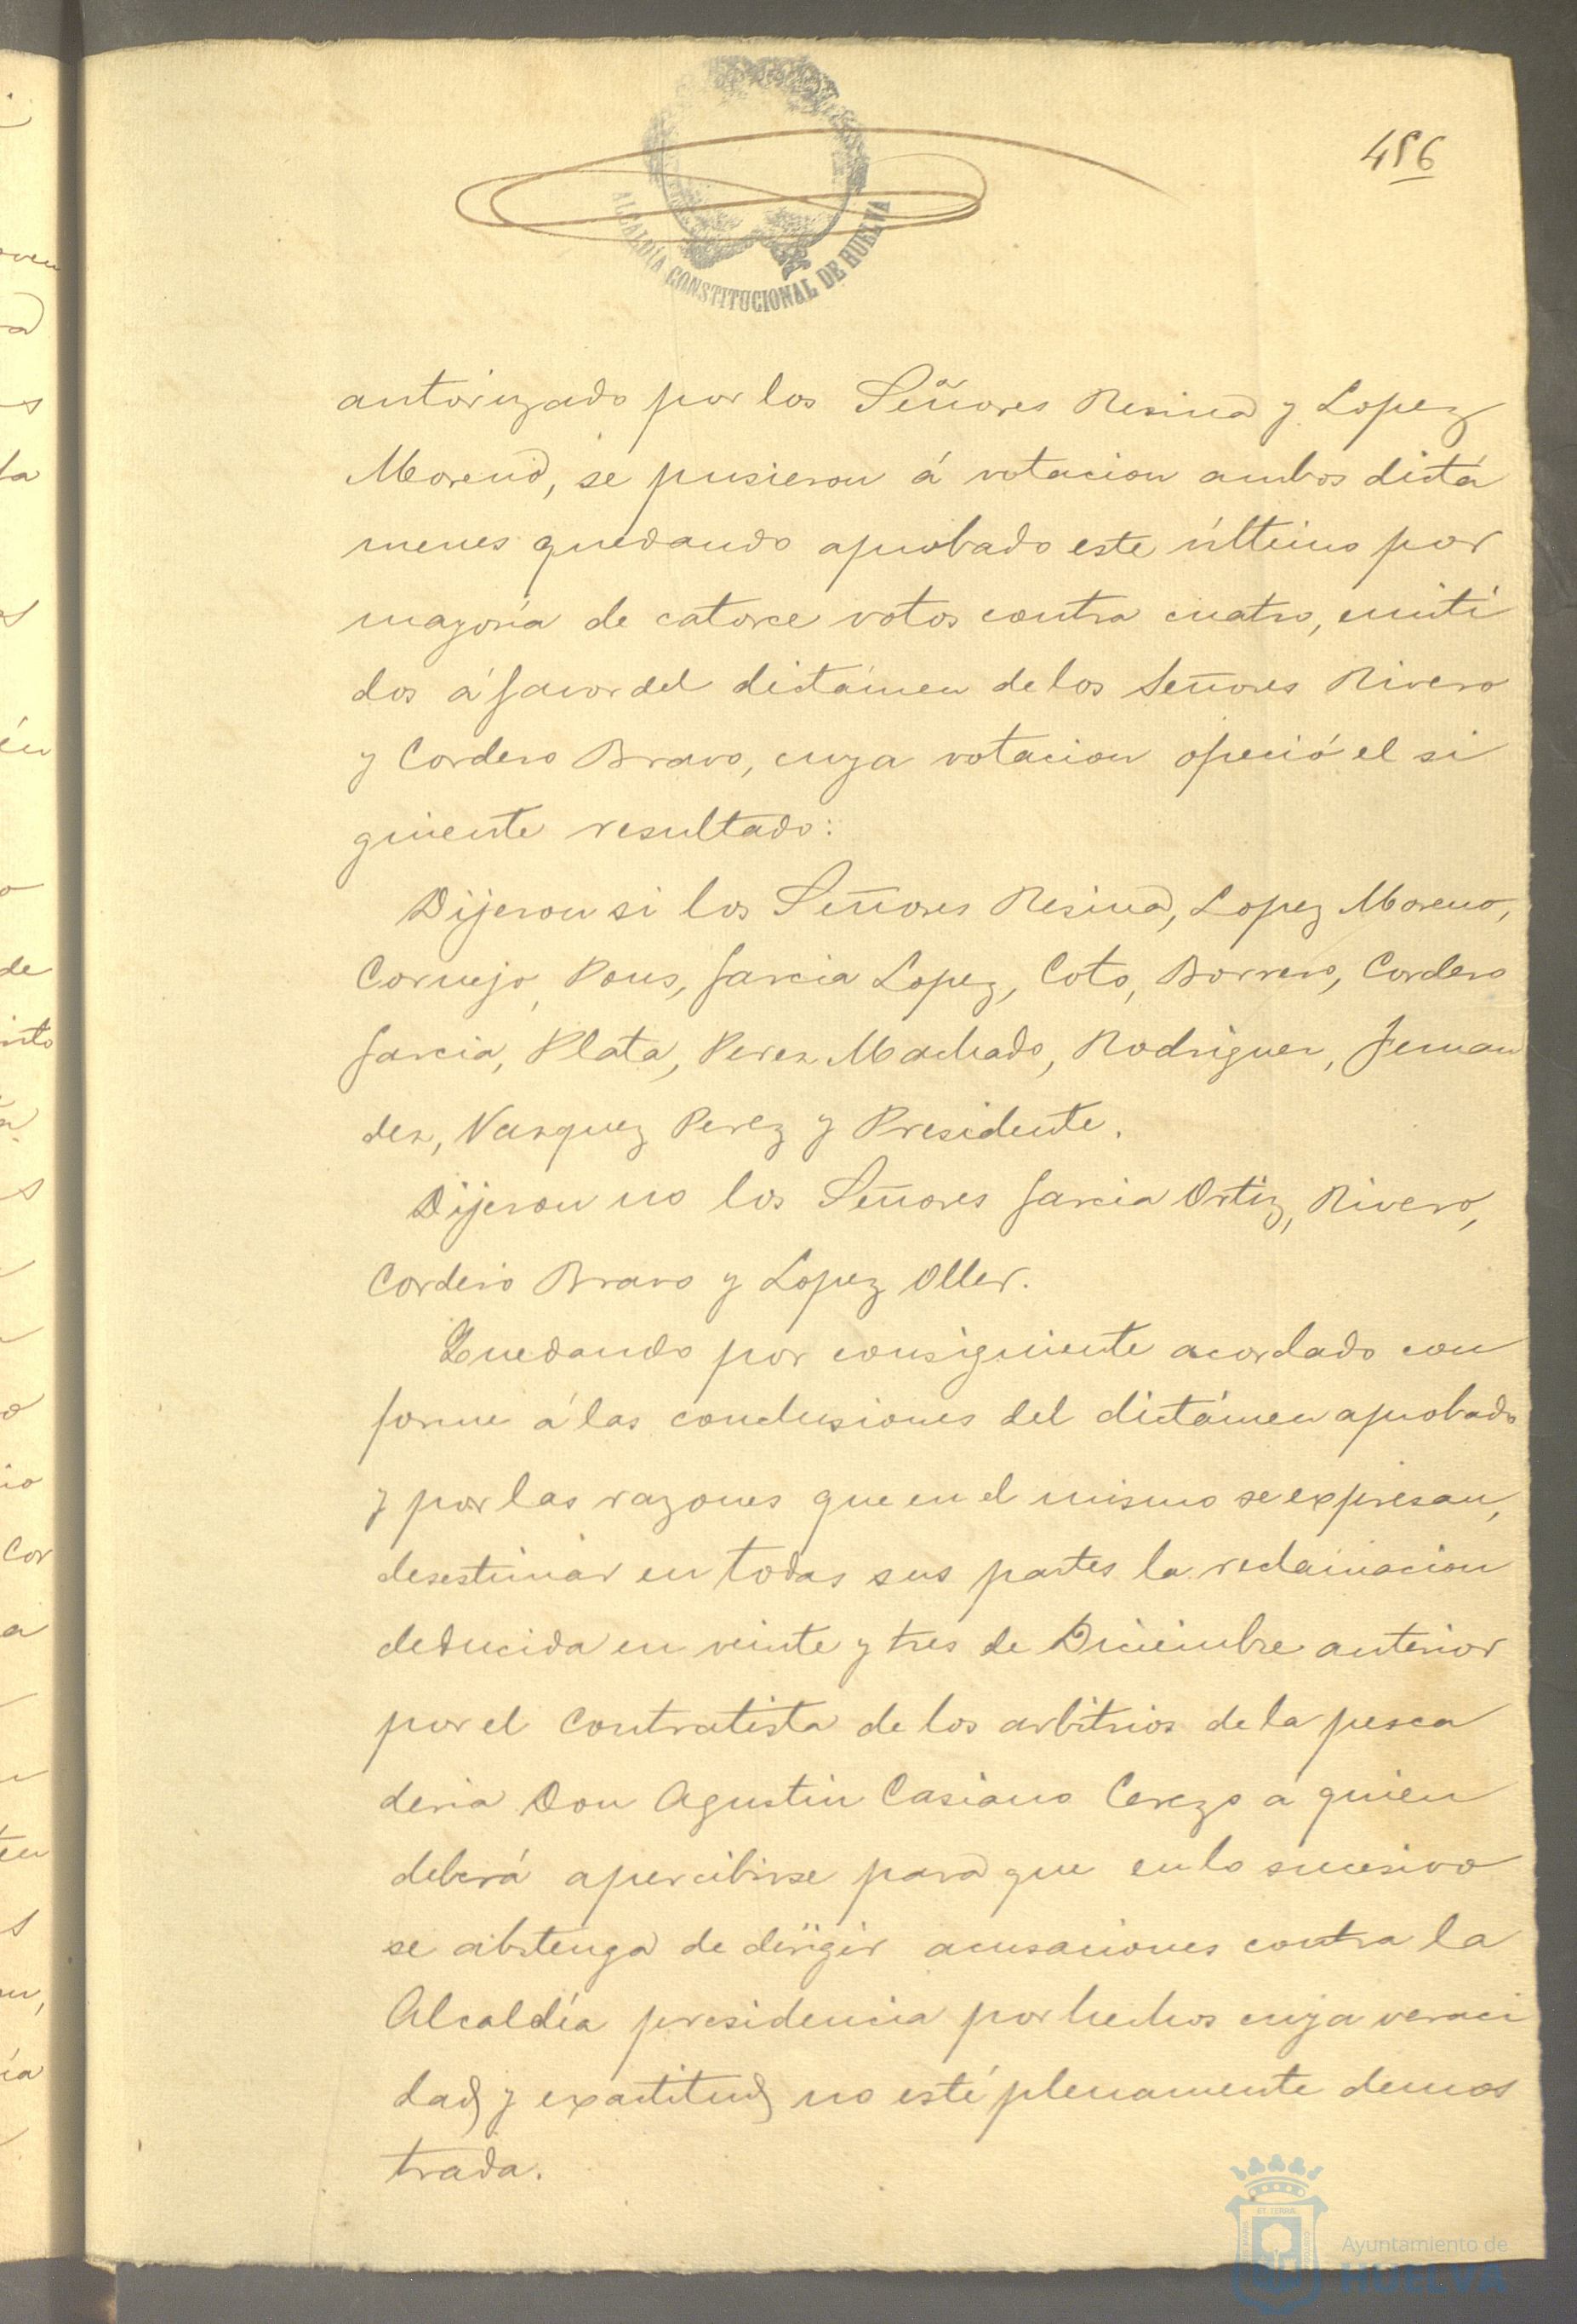 456
ALCALDÍA CONSTITUCIONAL DE HUELVA
autorizado por los Señores Resina y Lopez
Moreno, se pusieron á votacion ambos dictá
menes quedando aprobado este último por
mayoría de catorce votos contra cuatro, emiti
dos á favor del dictámen de los Señores Rivero
y Cordero Bravo, cuya votacion ofreció el si
guiente resultado:
Dijeron si los Señores Resina, Lopez Moreno,
Cornejo, Pons, Garcia Lopez, Coto, Borrero, Cordero
Garcia, Plata, Perez Machado, Rodriguez, Fernan
dez, Vazquez Perez y Presidente.
Dijeron no los Señores Garcia Ortiz, Rivero,
Cordero Bravo y Lopez Oller.
Quedando por consiguiente acordado con
forme á las conclusiones del dictámen aprobado
y por las razones que en el mismo se expresan,
desestimar en todas sus partes la reclamacion
deducida en veinte y tres de Diciembre anterior
por el contratista de los arbitrios de la pesca
deria Don Agustin Casiano Cerezo á quien
deberá apercibirse para que en lo sucesivo
se abstenga de dirigir acusaciones contra la
Alcaldía presidencia por hechos cuya veraci
dad y exactitud no esté plenamente demos
trada.
Ayuntamiento de
HUELVA